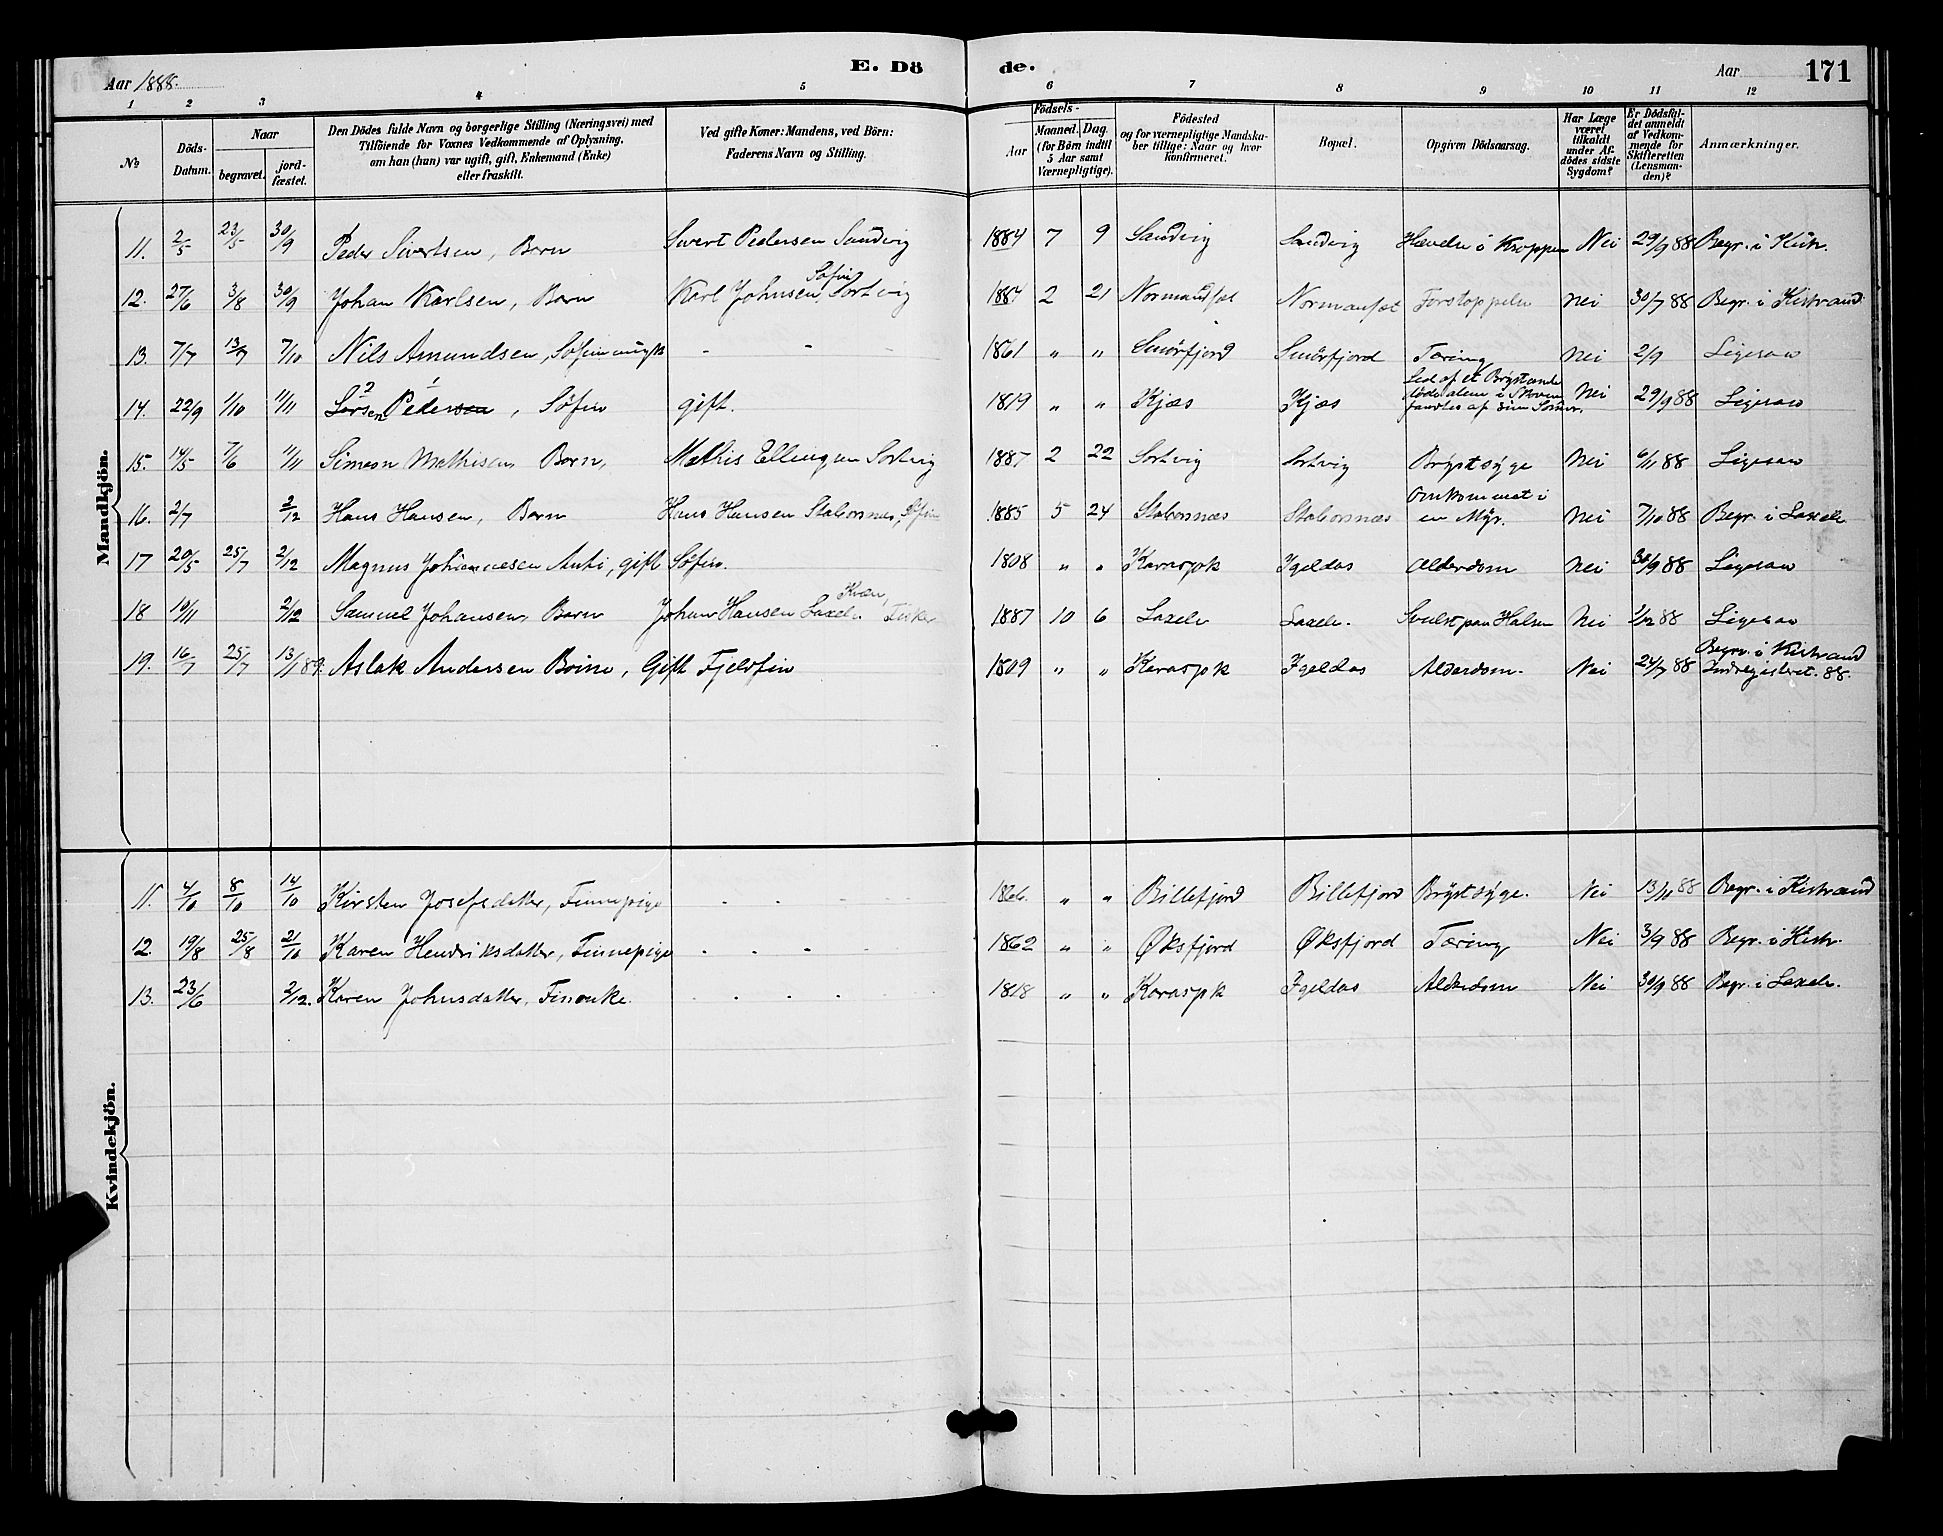 Aar 1888. E. Dö de. Aar 171
1 2 3 4 5 6 7 8 9 10 11 12
No Döds-Datum. Naar begravet. jord-fæstet. Den Dödes fulde Navn og borgerlige Stilling (Næringsvei) med Tilföiende for Voxnes Vedkommende af Oplysning, om han (hun) var ugift, gift, Enkemand (Enke) eller fraskilt. Ved gifte Koner: Mandens, ved Börn: Faderens Navn og Stilling. Födsels- Aar Maaned. Dag. (for Börn indtil 5 Aar samt Værnepligtige). Födested og for værnepligtige Mandskaber tillige: Naar og hvor konfirmeret. Bopæl. Opgiven Dödsaarsag. Har Læge været tilkaldt under Afdödes sidste Sygdom? Er Dödsfaldet anmeldt af Vedkommende for Skifteretten (Lensmanden)? Anmærkninger.
Mandkjön.
11. 2/5 23/5 30/9 Peder Sivertsen, Barn Sivert Pedersen Sandvig 1884 7 9 Sandvig Sandvig Hævelse i Kroppen Nei 29/9 88 Begr. i Kistr.
12. 27/6 3/8 30/9 Johan Karlsen, Barn Karl Johnsen, Söfin Sortvig 1887 2 21 Normandsæt Normansæt Forstoppelse Nei 30/7 88 Begr. i Kistrand
13. 7/7 13/7 7/10 Nils Amundsen, Söfin ungk - - - 1861 " " Smörfjord Smörfjord Tæring Nei 2/9 Ligesaa
14. 22/9 1/10 11/11 Larsen Pedersen, Söfin gift. 1819 " " Kjæs Kjæs Led af et Brystonde Nei 29/9 88 Ligesaa
15. 14/5 7/6 11/11 Simeon Mathisen, Barn, Mathis Ellingsen Sortvig 1887 2 22 Sortvig Sortvig Brystsyge Nei 6/11 88 Ligesaa
16. 2/7 2/12 Hans Hansen, Barn Hans Hansen Staborsnæs, Söfin 1885 5 24 Staborsnæs Staborsnæs Omkommet i en Myr. Nei 7/10 88 Begr. i Laxelv
17 20/5 25/7 2/12 Magnus Johannesen Anti, gift Söfin. 1808 " " Karasjok Igeldas Alderdom Nei 30/9 88 Ligesaa
18 10/11 2/12 Samuel Johansen, Barn Johan Hansen Laxelv. Kvæn, Fisker 1887 10 6 Laxelv Laxelv. Svulst paa Halsen Nei 1/12 88 Ligesaa
19. 16/7 25/7 13/1 89. Aslak Andersen Boine, Gift Fjeldfin 1809 " " Karasjok Igeldas Alderdom. Nei 24/7 88 Begr. i Kistrand Indregisteret. 88.
Kvindekjön.
11. 4/10 8/10 14/10 Kirsten Josefsdatter, Finnepige - - - 1866. " " Billefjord Billefjord Brystsyge. Nei 13/10 88 Begr. i Kistrand
12. 19/8 25/8 21/10 Karen Hendriksdatter, Finnepige - - - 1862 " " Øksfjord Øksfjord Tæring Nei 3/9 88 Begr. i Kistr.
13. 23/6 2/12. Karen Johnsdatter, Finenke. - - - 1818 " " Karasjok Igeldas Alderdom Nei 30/9 88 Begr. i Laxelv.